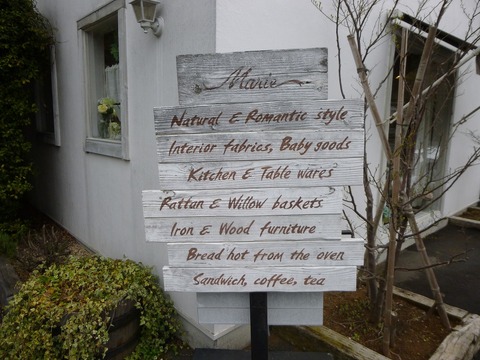 Marie
Natural & Romantic style
Interior fabrics, Baby goods
Kitchen & Table wares
Rattan & Willow baskets
Iron & Wood furniture
Bread hot from the oven
Sandwich, coffee, tea